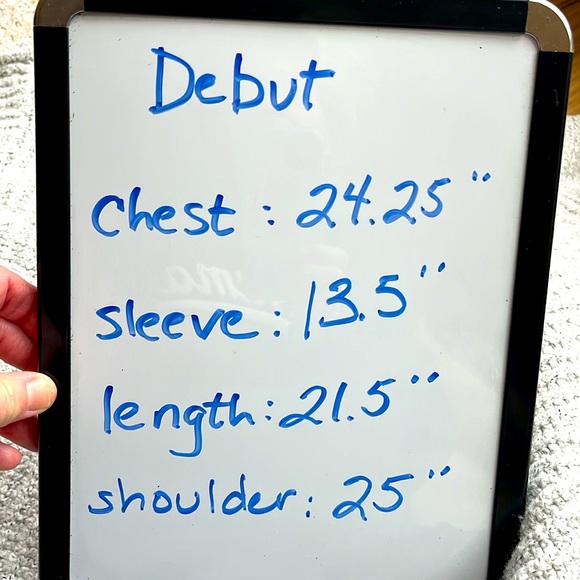 Debut
Chest : 24.25"
sleeve : 13.5"
length : 21.5"
shoulder : 25"